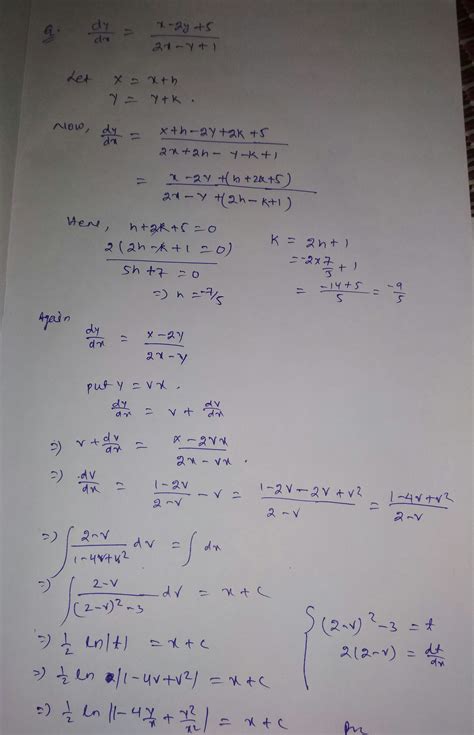 Q. dy/dx = x-2y+5 / 2x-y+1
Let x = x+h
y = y+k.
Now, dy/dx = x+h-2y+2k+5 / 2x+2h-y-k+1
= x-2y+(h+2k+5) / 2x-y+(2h-k+1)
Here, h+2k+5=0
2(2h-k+1=0)
5h+7=0
=> h=-7/5
k = 2h+1
= -2x7/5 + 1
= -14+5/5 = -9/5
Again
dy/dx = x-2y / 2x-y
put y = vx.
dy/dx = v + dv/dx
=> v+dv/dx = x-2vx / 2x-vx.
=> dv/dx = 1-2v/2-v - v = 1-2v-2v+v² / 2-v = 1-4v+v² / 2-v
=> ∫ 2-v / 1-4v+v² dv = ∫ dx
=> ∫ 2-v / (2-v)²-3 dv = x+c
=> 1/2 ln|t| = x+c
=> 1/2 ln |1-4v+v²| = x+c
=> 1/2 ln |1-4 y/x + y²/x²| = x+c
(2-v)²-3 = t
2(2-v) = dt/dx